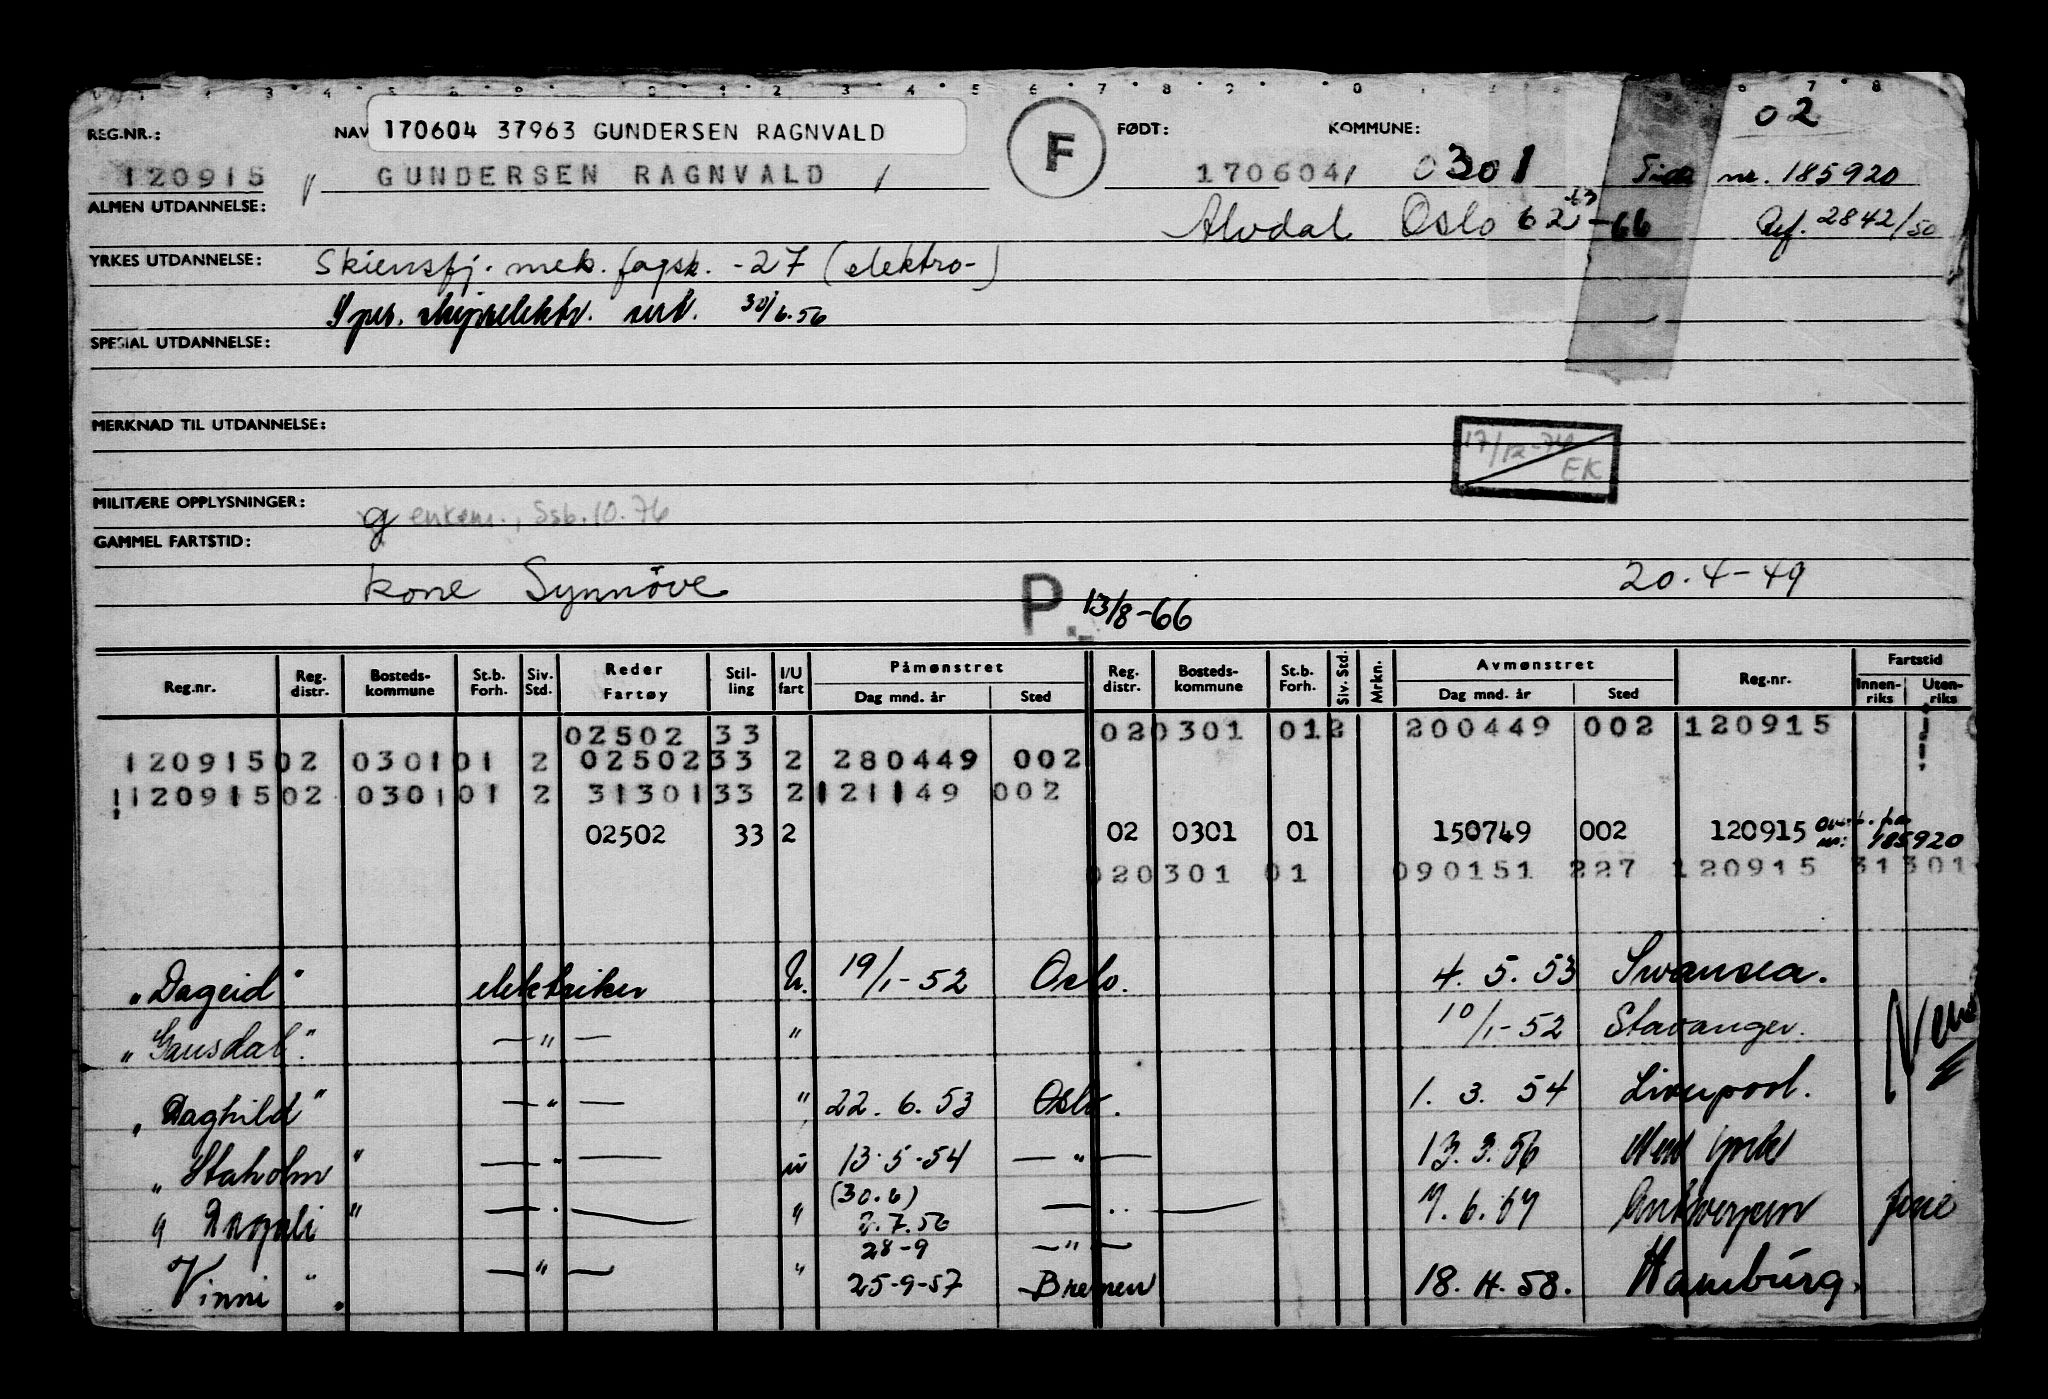 02
REG.NR.: NAV 170604 37963 GUNDERSEN RAGNVALD F FØDT: KOMMUNE:
120915 GUNDERSEN RAGNVALD 170604 0301 nr. 185920
ALMEN UTDANNELSE: Alvdal Oslo 62 -66 Ref. 2842/50
YRKES UTDANNELSE: Skiensfj. mek. fagsk. -27 (elektro-)
skipselektr. 30/6.56
SPESIAL UTDANNELSE:
MERKNAD TIL UTDANNELSE:
17/12-74 EK
MILITÆRE OPPLYSNINGER: g , Ssb. 10.76
GAMMEL FARTSTID:
kone Synnöve 20.4-49
P. 13/8-66
Reg.nr. Reg. distr. Bosteds-kommune St.b. Forh. Siv. Std. Reder Fartøy Stil-ling I/U fart Påmønstret Dag mnd. år Sted Reg. distr. Bosteds-kommune St.b. Forh. Siv. Std. Mrkn. Avmønstret Dag mnd. år Sted Reg.nr. Fartstid Innen-riks Uten-riks
02502 33 02 0301 01 2 200449 002 120915
120915 02 0301 01 2 02502 33 2 280449 002
120915 02 0301 01 2 31301 33 2 121149 002
02502 33 2 02 0301 01 150749 002 120915 185920
02 0301 01 090151 227 120915 31301
"Dageid" elektriker U. 19/1-52 Oslo. 4.5.53 Swansea.
"Gausdal". —"— " 10/1-52 Stavanger.
"Daghild" —"— " 22.6.53 Oslo. 1.3.54 Liverpool.
"Staholm" —"— 13.5.54 —"— 13.3.56 New York
" Dagali " —"— " (30.6) 2.7.56 —"— 7.6.57 Antwerpen
28-9 —"—
Vinni " —"— " 25-9-57 Bremen 18.4.58. Hamburg.